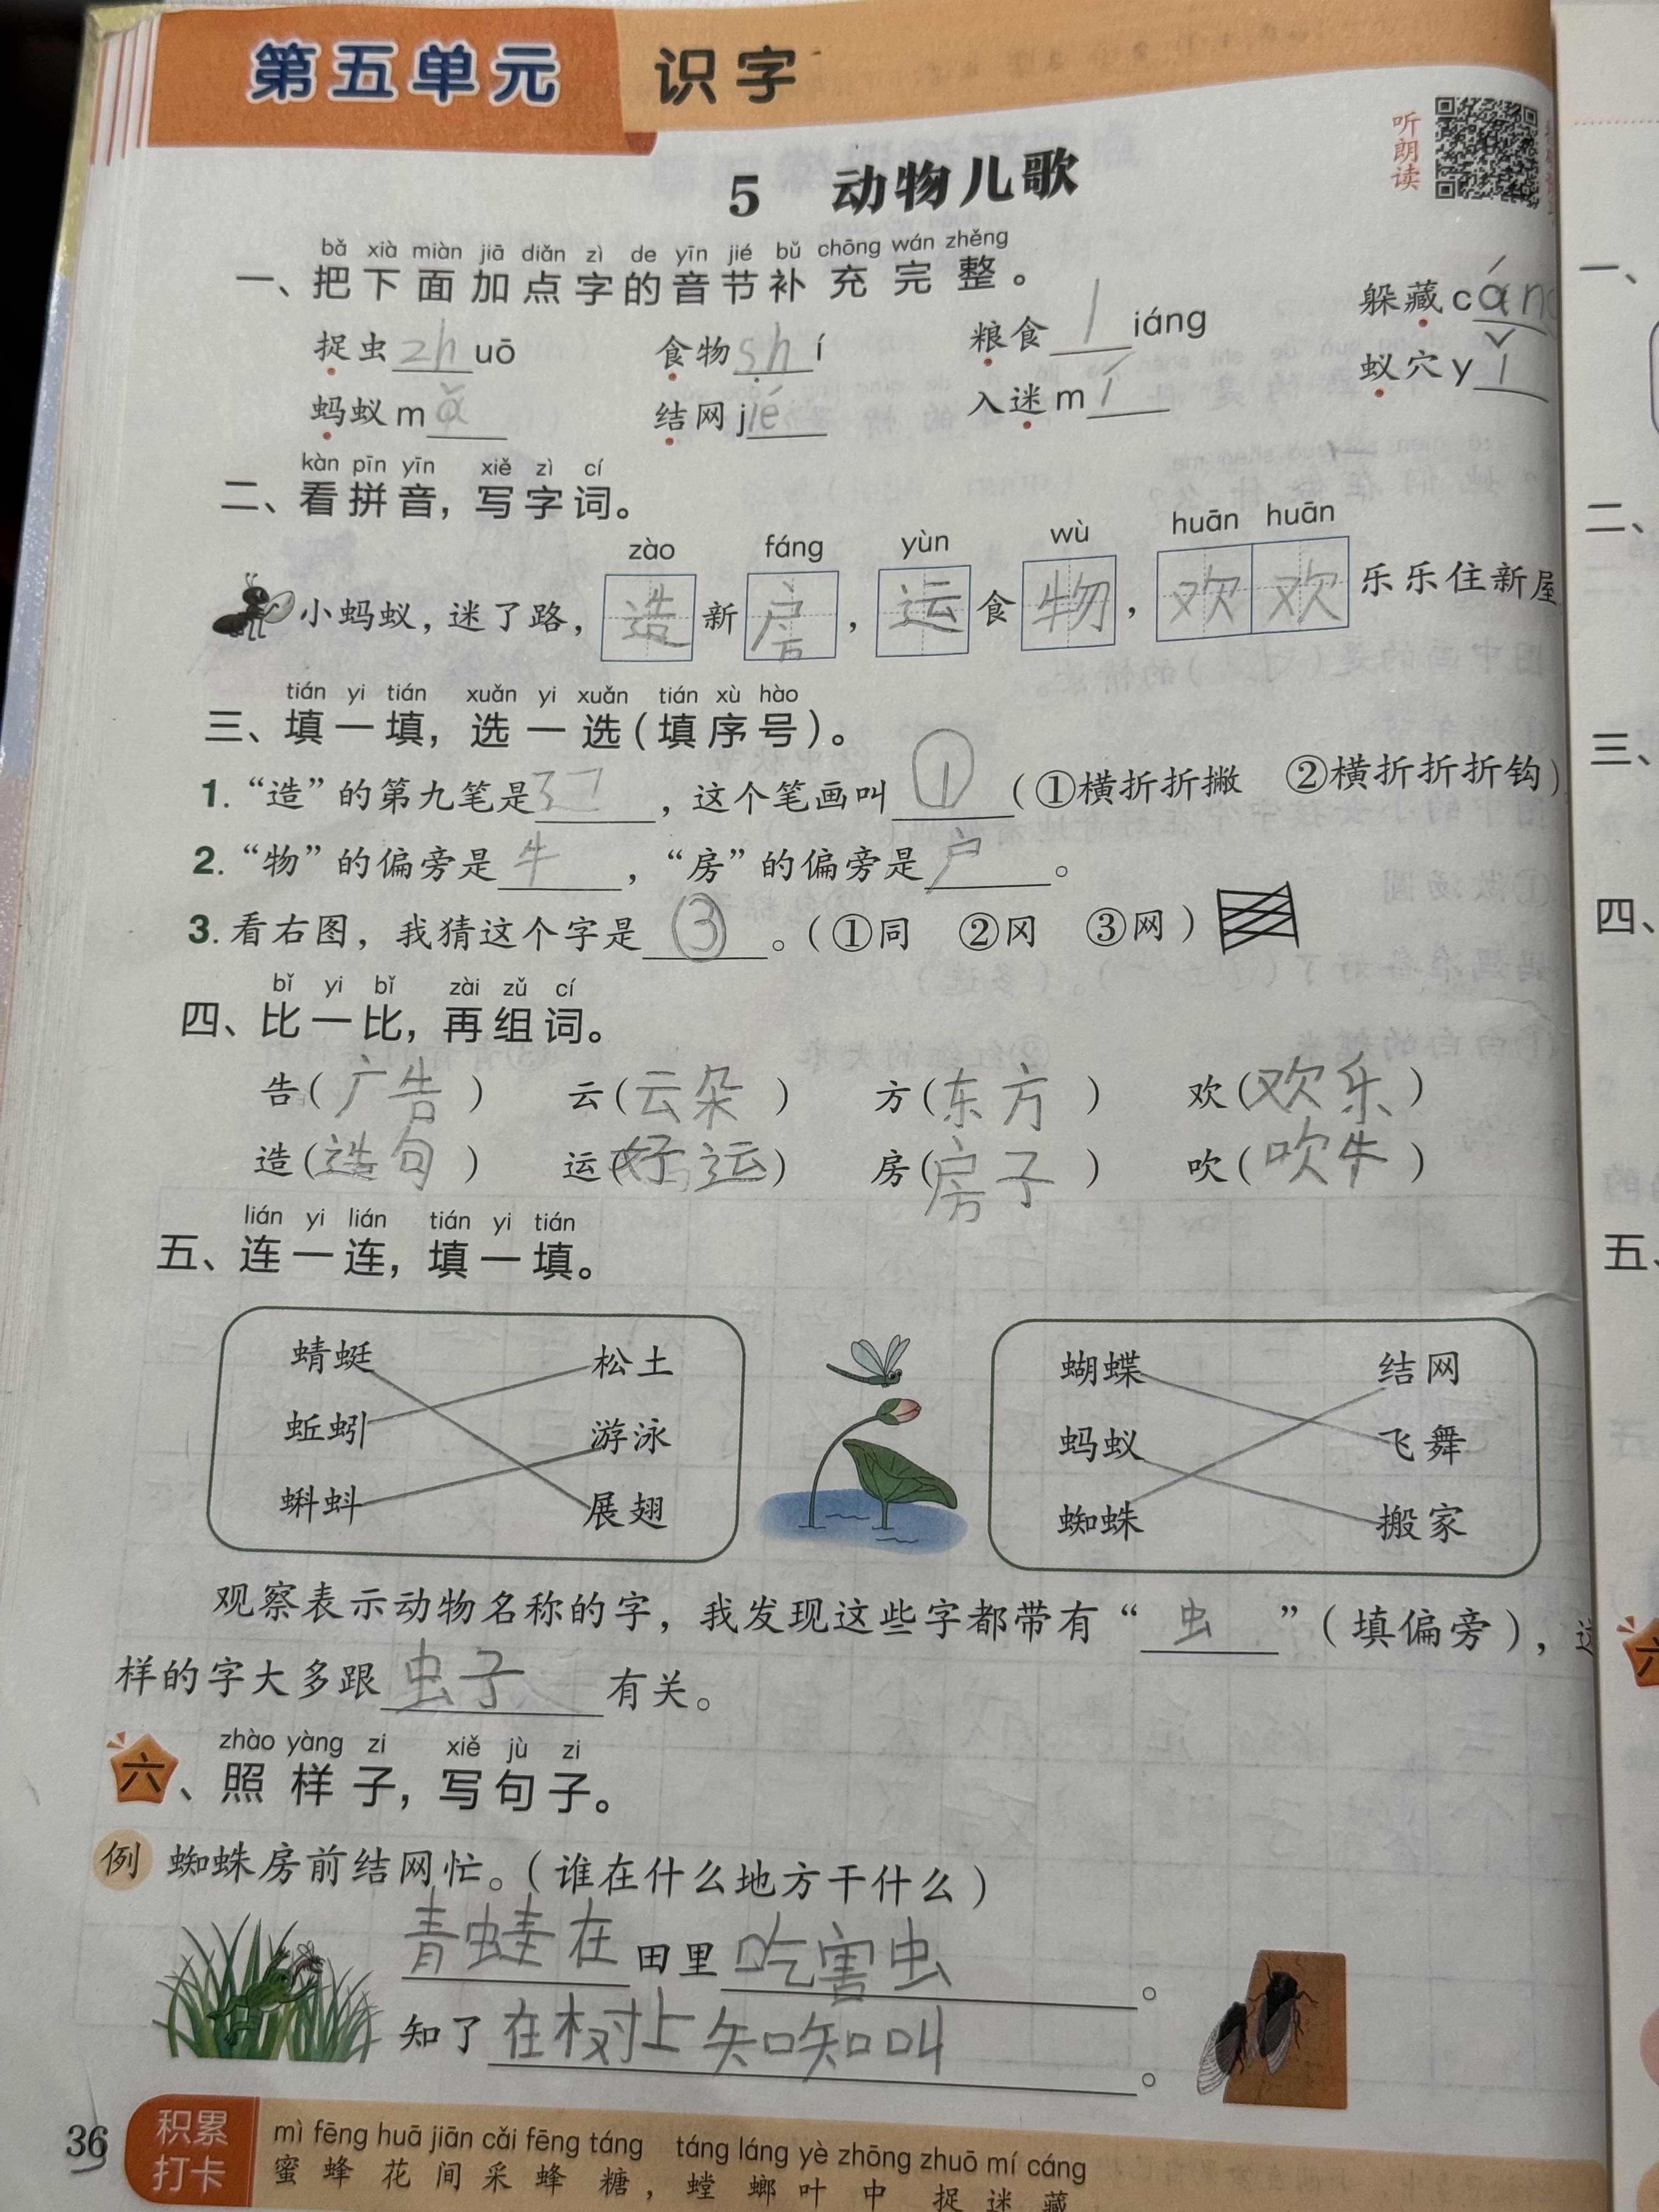 第五单元 识字
听朗读
5 动物儿歌
bǎ xià miàn jiā diǎn zì de yīn jié bǔ chōng wán zhěng
一、把下面加点字的音节补充完整。
捉虫 zhuō 食物 shí 粮食 liáng 躲藏 cán
蚂蚁 mǎ 结网 jié 入迷 mí 蚁穴 yǐ
kàn pīn yīn xiě zì cí
二、看拼音，写字词。
zào fáng yùn wù huān huān
小蚂蚁，迷了路，造新房，运食物，欢欢乐乐住新屋
tián yi tián xuǎn yi xuǎn tián xù hào
三、填一填，选一选（填序号）。
1. “造”的第九笔是，这个笔画叫①（①横折折撇 ②横折折折钩）
2. “物”的偏旁是牛，“房”的偏旁是户。
3. 看右图，我猜这个字是③。（①同 ②冈 ③网）
bǐ yi bǐ zài zǔ cí
四、比一比，再组词。
告（广告） 云（云朵） 方（东方） 欢（欢乐）
造（造句） 运（好运） 房（房子） 吹（吹牛）
lián yi lián tián yi tián
五、连一连，填一填。
蜻蜓 松土 蝴蝶 结网
蚯蚓 游泳 蚂蚁 飞舞
蝌蚪 展翅 蜘蛛 搬家
观察表示动物名称的字，我发现这些字都带有“虫”（填偏旁），这
样的字大多跟虫子有关。
zhào yàng zi xiě jù zi
六、照样子，写句子。
例 蜘蛛房前结网忙。（谁在什么地方干什么）
青蛙在田里吃害虫。
知了在树上知知叫。
36
积累打卡
mì fēng huā jiān cǎi fēng táng táng láng yè zhōng zhuō mí cáng
蜜蜂花间采蜂糖，螳螂叶中捉迷藏
一、
二、
三、
四、
五、
六